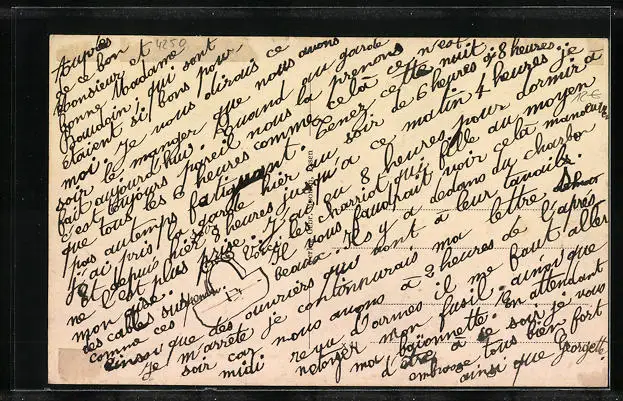 4250
Auprès
de ce bon
Monsieur et
bonne Madame
Baudein; qui sont
étaient si bons pour
moi. Je vous dirais ce
soir le manger que nous avons
fait aujourd'hui. Quand au garde
c'est toujours pareil nous la prenons
que tous les 6 heures comme celà ce n'est
pas autemps fatiguant. Tenez cette nuit
j'ai pris la garde hier au soir de 6 heures à 8 heures
Et depuis hier 8 heures jusqu'à ce matin 4 heures je
ne l'est plus prise. J'ai eu 8 heures pour dormir à
mon aise. Voici les charriot qui file au moyen
des cables suspendu. Il vous faudrait voir celà manoeuvré
comme ces beaux. Ils y a dedans du charbon
ainsi que des ouvriers qui vont à leur travails.
Je m'arrète je continuerais ma lettre
soir car nous avons à 2 heures de l'après
midi revu d'armes il me faut aller
netoyer mon fusil. ainsi que
ma baionnette. En attendant
d'être à ce soir je vous
embrasse tous bien fort
ainsi que Georgette